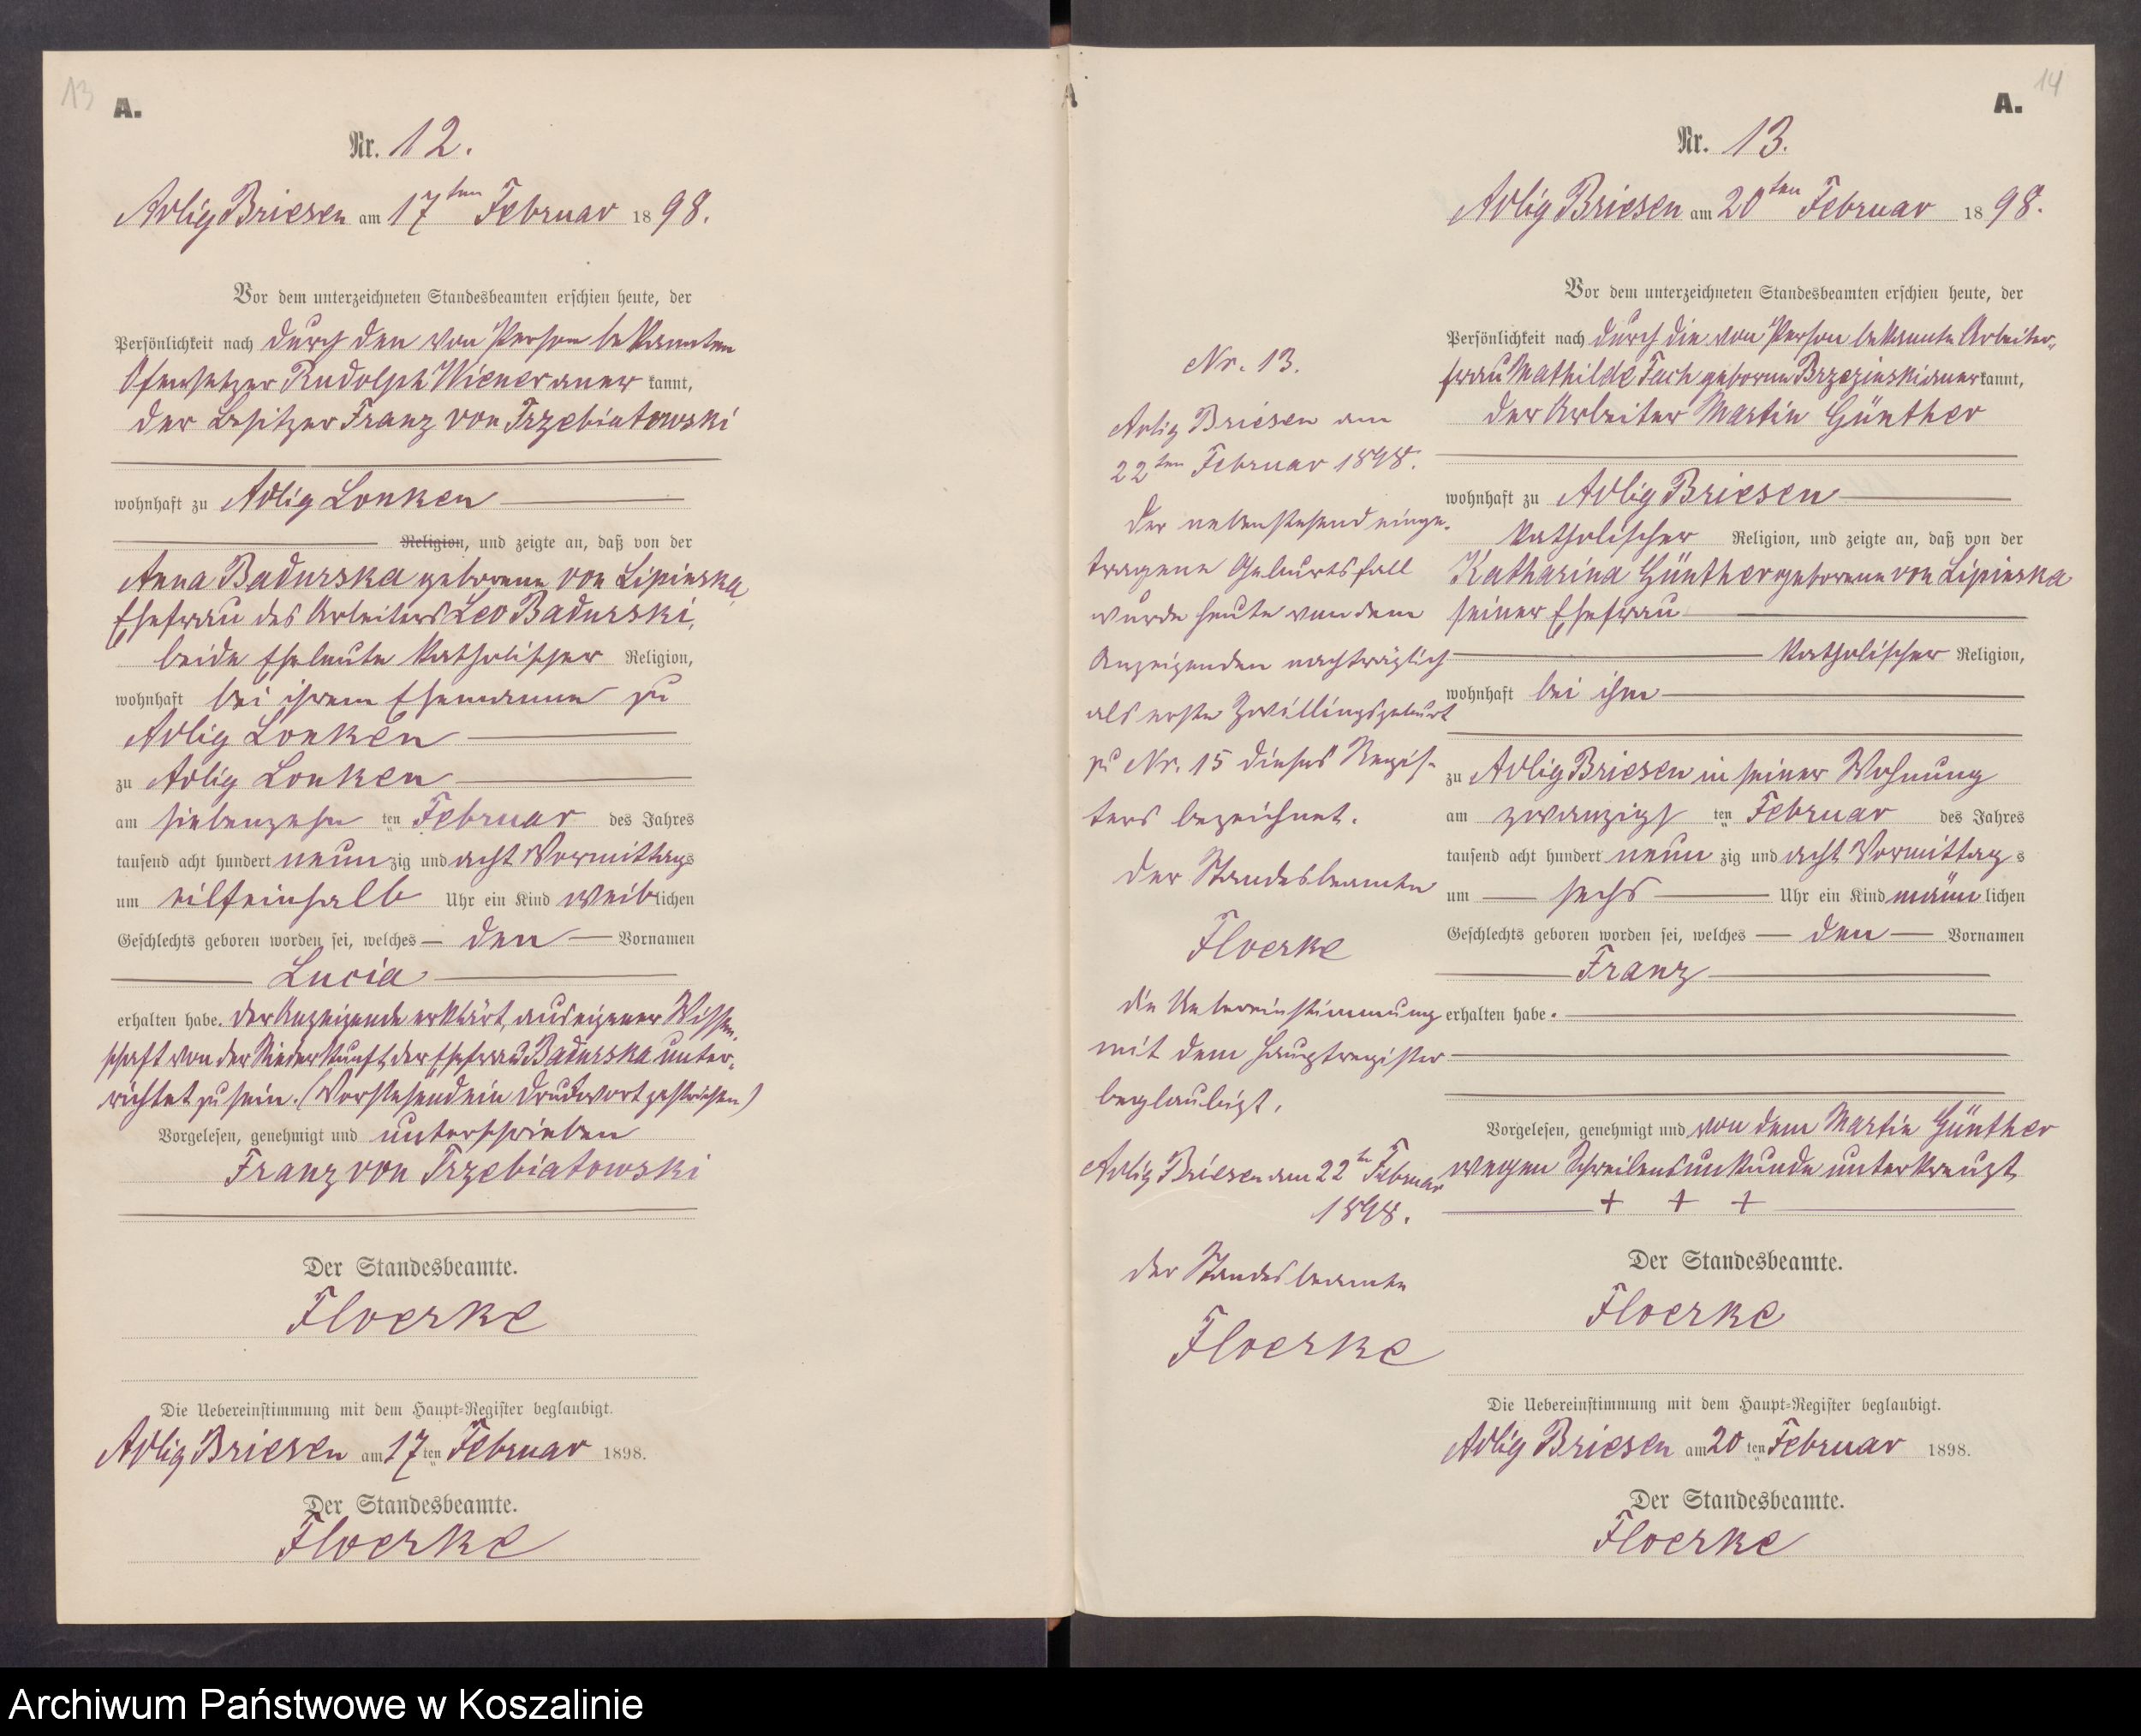 13
A.
Nr. 12.
Adlig Briesen am 17ten Februar 1898.
Vor dem unterzeichneten Standesbeamten erschien heute, der
Persönlichkeit nach durch den von Person bekannten
Ofensetzer Rudolph Wiener aner kannt,
der Besitzer Franz von Trzebiatowski
wohnhaft zu Adlig Lonken
Religion, und zeigte an, daß von der
Anna Badurska geborene von Lipinska,
Ehefrau des Arbeiters Leo Badurski,
beide Eheleute katholischer Religion,
wohnhaft bei ihrem Ehemanne zu
Adlig Lonken
zu Adlig Lonken
am siebenzehn ten Februar des Jahres
tausend acht hundert neun zig und acht Vormittags
um eilfeinhalb Uhr ein Kind weiblichen
Geschlechts geboren worden sei, welches — den — Vornamen
Lucia
erhalten habe. Der Anzeigende erklärt, aus eigener Wissen-
schaft von der Niederkunft der Ehefrau Badurska unter-
richtet zu sein. (Vorstehend ein Druckwort gestrichen)
Vorgelesen, genehmigt und unterschrieben
Franz von Trzebiatowski
Der Standesbeamte.
Floerke
Die Uebereinstimmung mit dem Haupt-Register beglaubigt.
Adlig Briesen am 17ten Februar 1898.
Der Standesbeamte.
Floerke
Nr. 13.
Adlig Briesen am
22ten Februar 1898.
Der nebenstehend einge-
tragene Geburtsfall
wurde heute von dem
Anzeigenden nachträglich
als erste Zwillingsgeburt
zu Nr. 15 dieses Regis-
ters bezeichnet.
Der Standesbeamte
Floerke
Die Uebereinstimmung
mit dem Hauptregister
beglaubigt.
Adlig Briesen am 22ten Februar
1898.
Der Standesbeamte
Floerke
14
A.
Nr. 13.
Adlig Briesen am 20ten Februar 1898.
Vor dem unterzeichneten Standesbeamten erschien heute, der
Persönlichkeit nach durch die von Person bekannte Arbeiter-
frau Mathilde Fach geborene Brzezinski aner kannt,
der Arbeiter Martin Günther
wohnhaft zu Adlig Briesen
katholischer Religion, und zeigte an, daß von der
Katharina Günther geborene von Lipinska
seiner Ehefrau
katholischer Religion,
wohnhaft bei ihm
zu Adlig Briesen in seiner Wohnung
am zwanzigs ten Februar des Jahres
tausend acht hundert neun zig und acht Vormittag s
um — sechs — Uhr ein Kind männ lichen
Geschlechts geboren worden sei, welches — den — Vornamen
Franz
erhalten habe.
Vorgelesen, genehmigt und von dem Martin Günther
wegen Schreibensunkunde unterkreuzt
+ + +
Der Standesbeamte.
Floerke
Die Uebereinstimmung mit dem Haupt-Register beglaubigt.
Adlig Briesen am 20 ten Februar 1898.
Der Standesbeamte.
Floerke
Archiwum Państwowe w Koszalinie